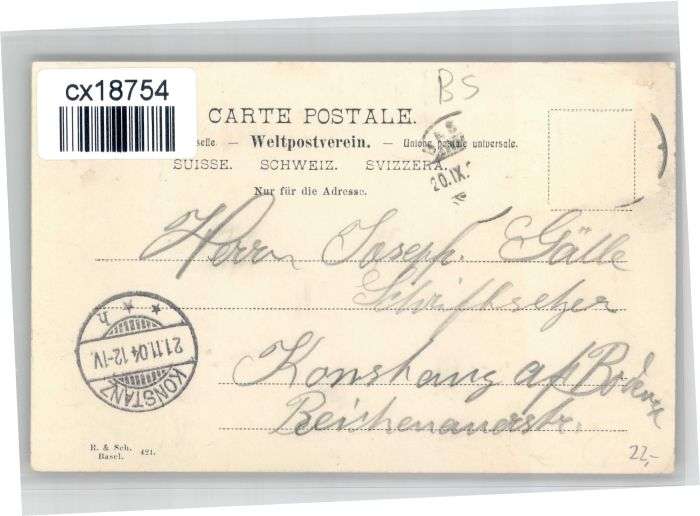 BS
cx18754
CARTE POSTALE.
selle. — Weltpostverein. — Unione postale universale.
SUISSE. SCHWEIZ. SVIZZERA.
Nur für die Adresse.
BAS
20.IX.
Herrn Joseph Gälle
Schriftsetzer
Konstanz a/ Bodensee
Reichenauerstr.
KONSTANZ
21.11.04.12-1V.
h
R. & Sch.
Basel. 421.
22,-